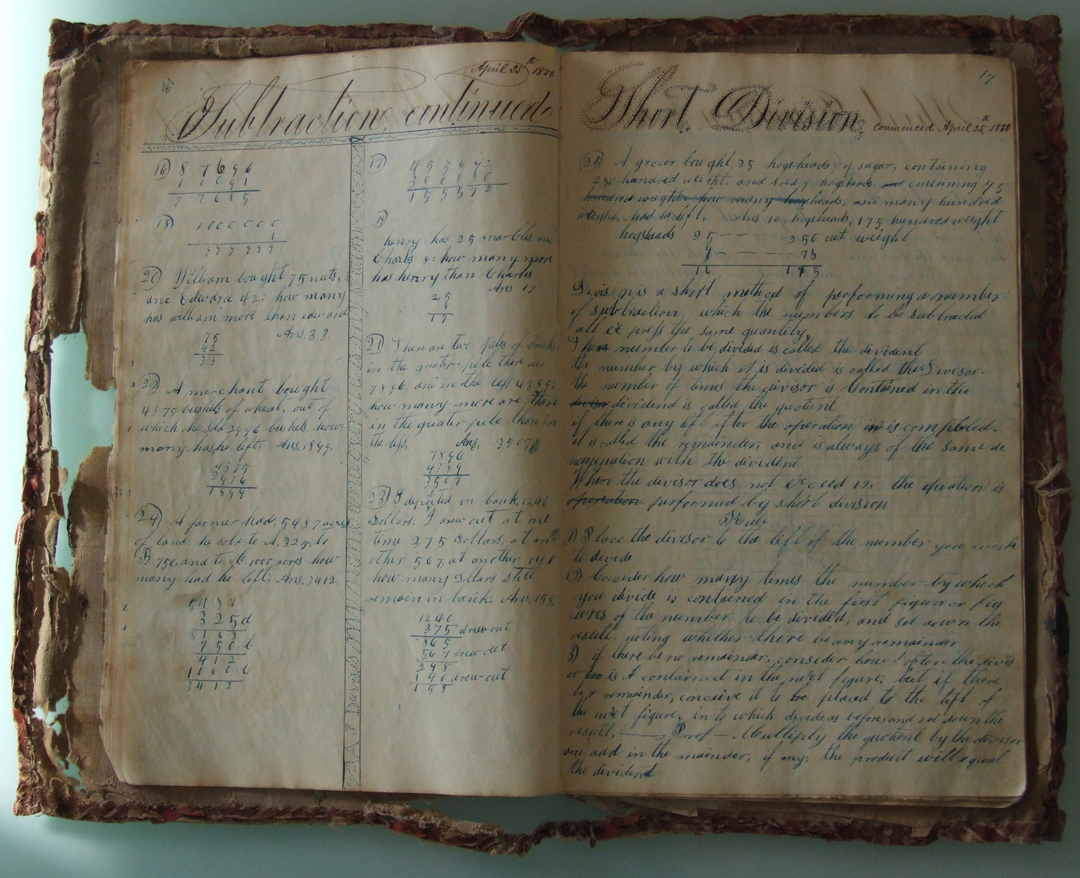 16
April 25th 1850
Subtraction, continued
16) 8 7 6 9 6
1 1 0 9 1
7 7 6 0 5
18) 1000000
1
999999
20) William bought 75 nuts,
and Edward 42: how many
has william more than edward
Ans 33
75
42
33
22) A merchant bought
4875 bushels of wheat, out of
which he sold 2976 bushels, how
many has he left. Ans. 1899.
4875
2976
1899
24) A farmer had, 5487 acres
of land. he sold to A. 325, to
B 750, and to C. 1000 acres how
many had he left. Ans. 3412
5487
325 a
5162
750 b
4412
1000 c
3412
17)
155512
19
henry has 25 marbles and
Charles 8: how many more
has henry than Charles
Ans 17
25
8
17
21) There are two piles of brick
in the greater pile there are
7896, and in the less 4389:
how many more are there
in the greater pile than in
the less. Ans, 3507
7896
4389
3507
23) I deposited in bank 1240
dollars. I drew out at one
time 375 dollars, at an
other 567, at another 140
how many dollars still
remain in bank. Ans. 158
1240
375 drew out
865
567 drew out
298
140 drew out
158
17
Short Division, Commenced April 25th 1850
25) A grocer bought, 25 hogsheads of sugar, containing
250 hundred weight. and sold 9 hogsheads, and containing 75
hundred weight, how many hogsheads, and many hundred
weight, had he left. Ans 16 hogsheads, 175 hundred weight
hogsheads 25 — — 250 cwt weight
9 — — 75
16 175
Division is a short method of performing a number
of subtraction, which the numbers to be subtracted
all express the same quantity,
The number to be divided is called the devident
the number by which it is divided is called the Divisor
the number of times the divisor is Contained in the
divisor dividend is called the quotient
if there is any left after the operation is compleled.
it is called the remainder, and is always of the same de
nomination with the divident.
When the devisor does not exceed 12. the opration is
operation performed by short division
Rule
1) Place the divisor to the left of the number you wish
to devide
2) Consider how many times the number by which
you divide is contained in the first figure or fig
ures of the number to be divided, and set down the
result, noting whether there be any remainder
3) if there be no remainder, consider how often the divis
or is contained in the next figure, but if there
be a remainder, conceive it to be placed to the left of
the next figure, in to which divide as before and set down the
result, — Proof — Multiply the quotient by the divisor
and add in the mainder, if any: the product will equal
the dividend